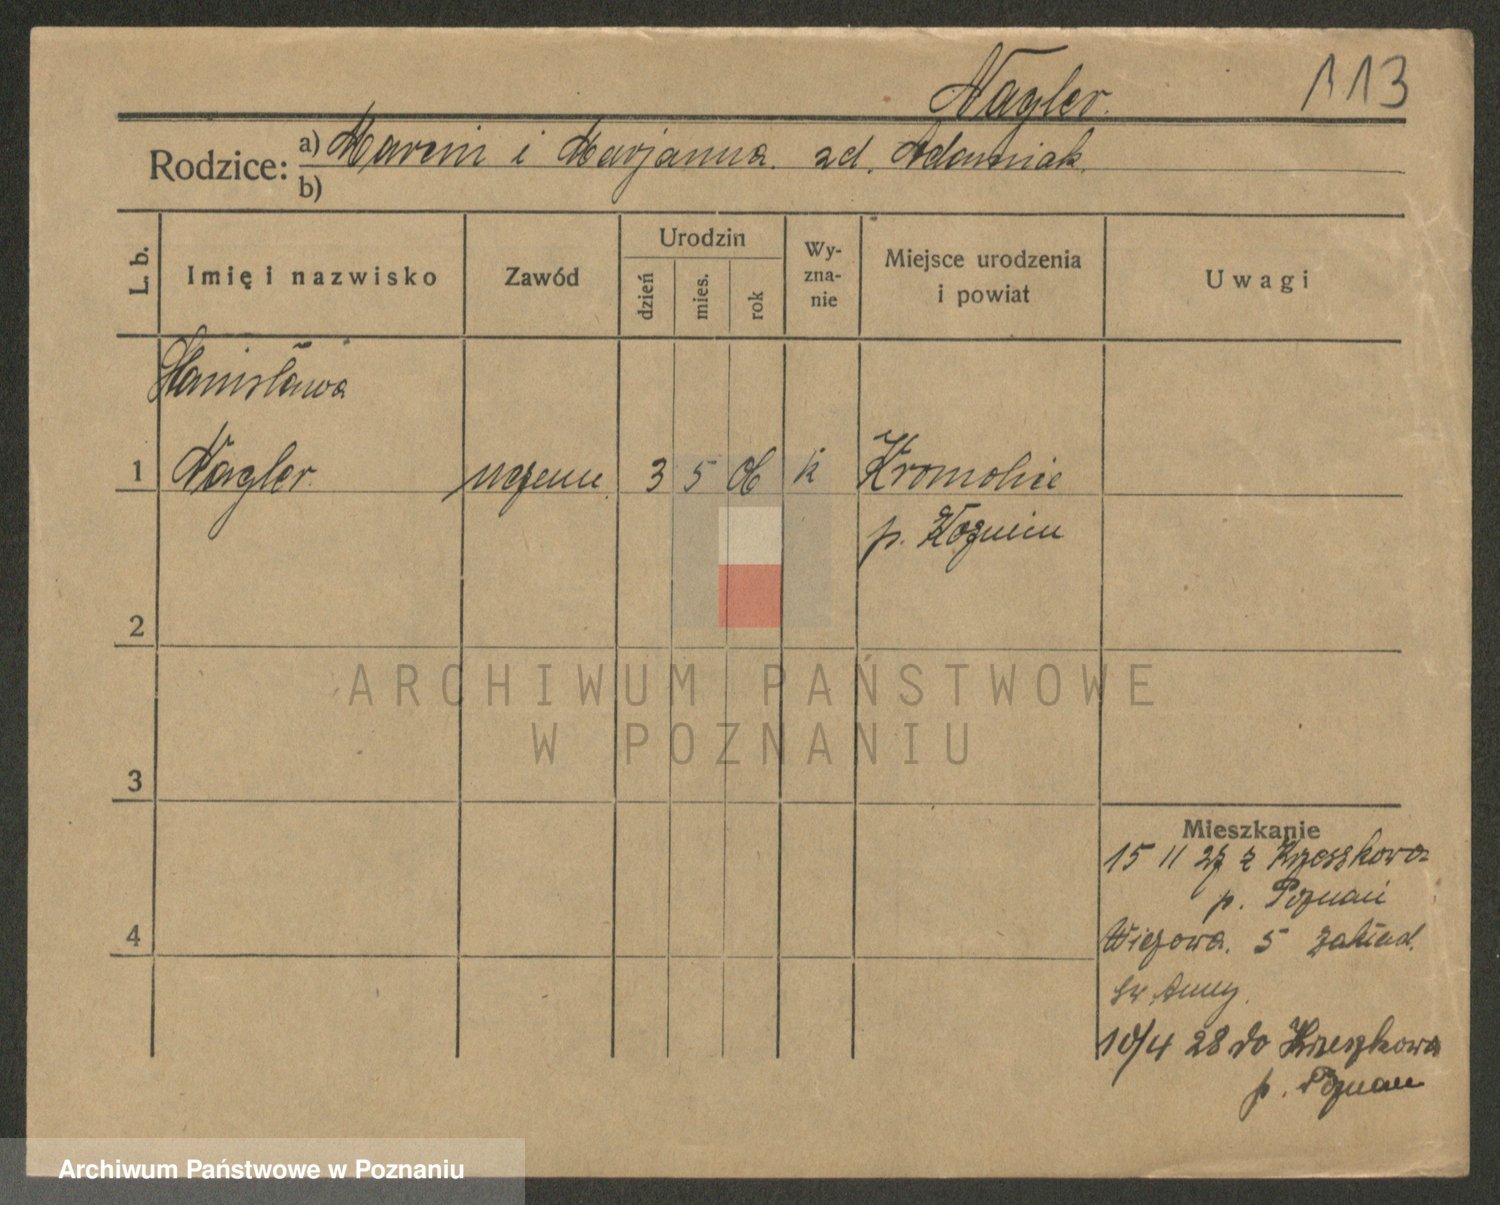 Nagler. 113
Rodzice: a) Marcin i Marjanna zd. Adamiak.
b)
L. b.
Imię i nazwisko
Zawód
Urodzin
dzień
mies.
rok
Wy-
zna-
nie
Miejsce urodzenia
i powiat
Uwagi
Stanisława
1 Nagler. uczenn. 3 5 06 k Kromolice
p. Koźmin
2
3
4
Mieszkanie
15 11 27 z
p. Poznań
5 zakład.
św Anny.
10/4 28 do
p. Poznań
ARCHIWUM PAŃSTWOWE
W POZNANIU
Archiwum Państwowe w Poznaniu